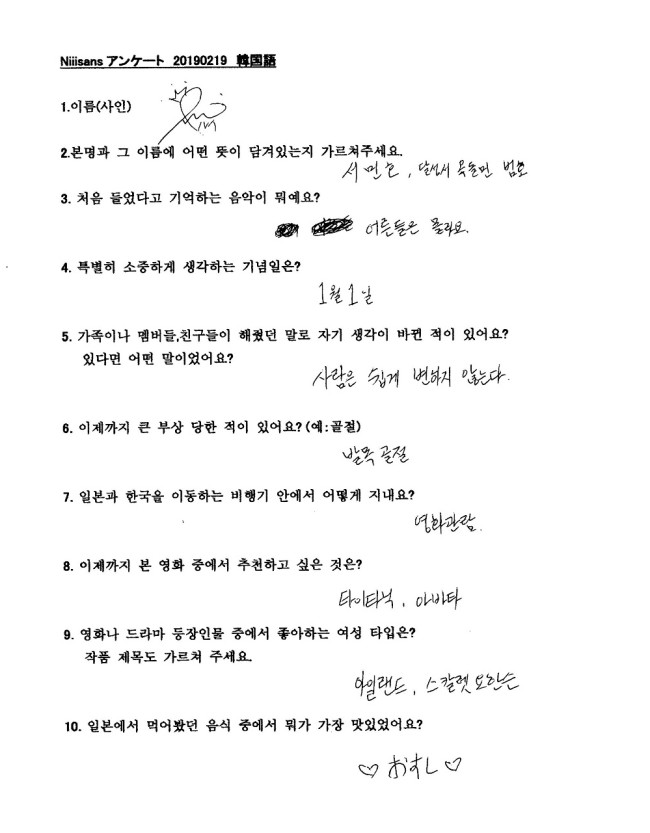 Niiisans アンケート 20190219 韓国語
1.이름(사인)
2.본명과 그 이름에 어떤 뜻이 담겨있는지 가르쳐주세요.
서 민호, 범호
3. 처음 들었다고 기억하는 음악이 뭐예요?
어른들은 몰라요.
4. 특별히 소중하게 생각하는 기념일은?
1월 1일
5. 가족이나 멤버들,친구들이 해줬던 말로 자기 생각이 바뀐 적이 있어요?
있다면 어떤 말이었어요?
사람은 쉽게 변하지 않는다.
6. 이제까지 큰 부상 당한 적이 있어요?(예:골절)
발목 골절
7. 일본과 한국을 이동하는 비행기 안에서 어떻게 지내요?
영화관람.
8. 이제까지 본 영화 중에서 추천하고 싶은 것은?
타이타닉, 아바타
9. 영화나 드라마 등장인물 중에서 좋아하는 여성 타입은?
작품 제목도 가르쳐 주세요.
아일랜드, 스칼렛 요한슨
10. 일본에서 먹어봤던 음식 중에서 뭐가 가장 맛있었어요?
♡ おすし ♡